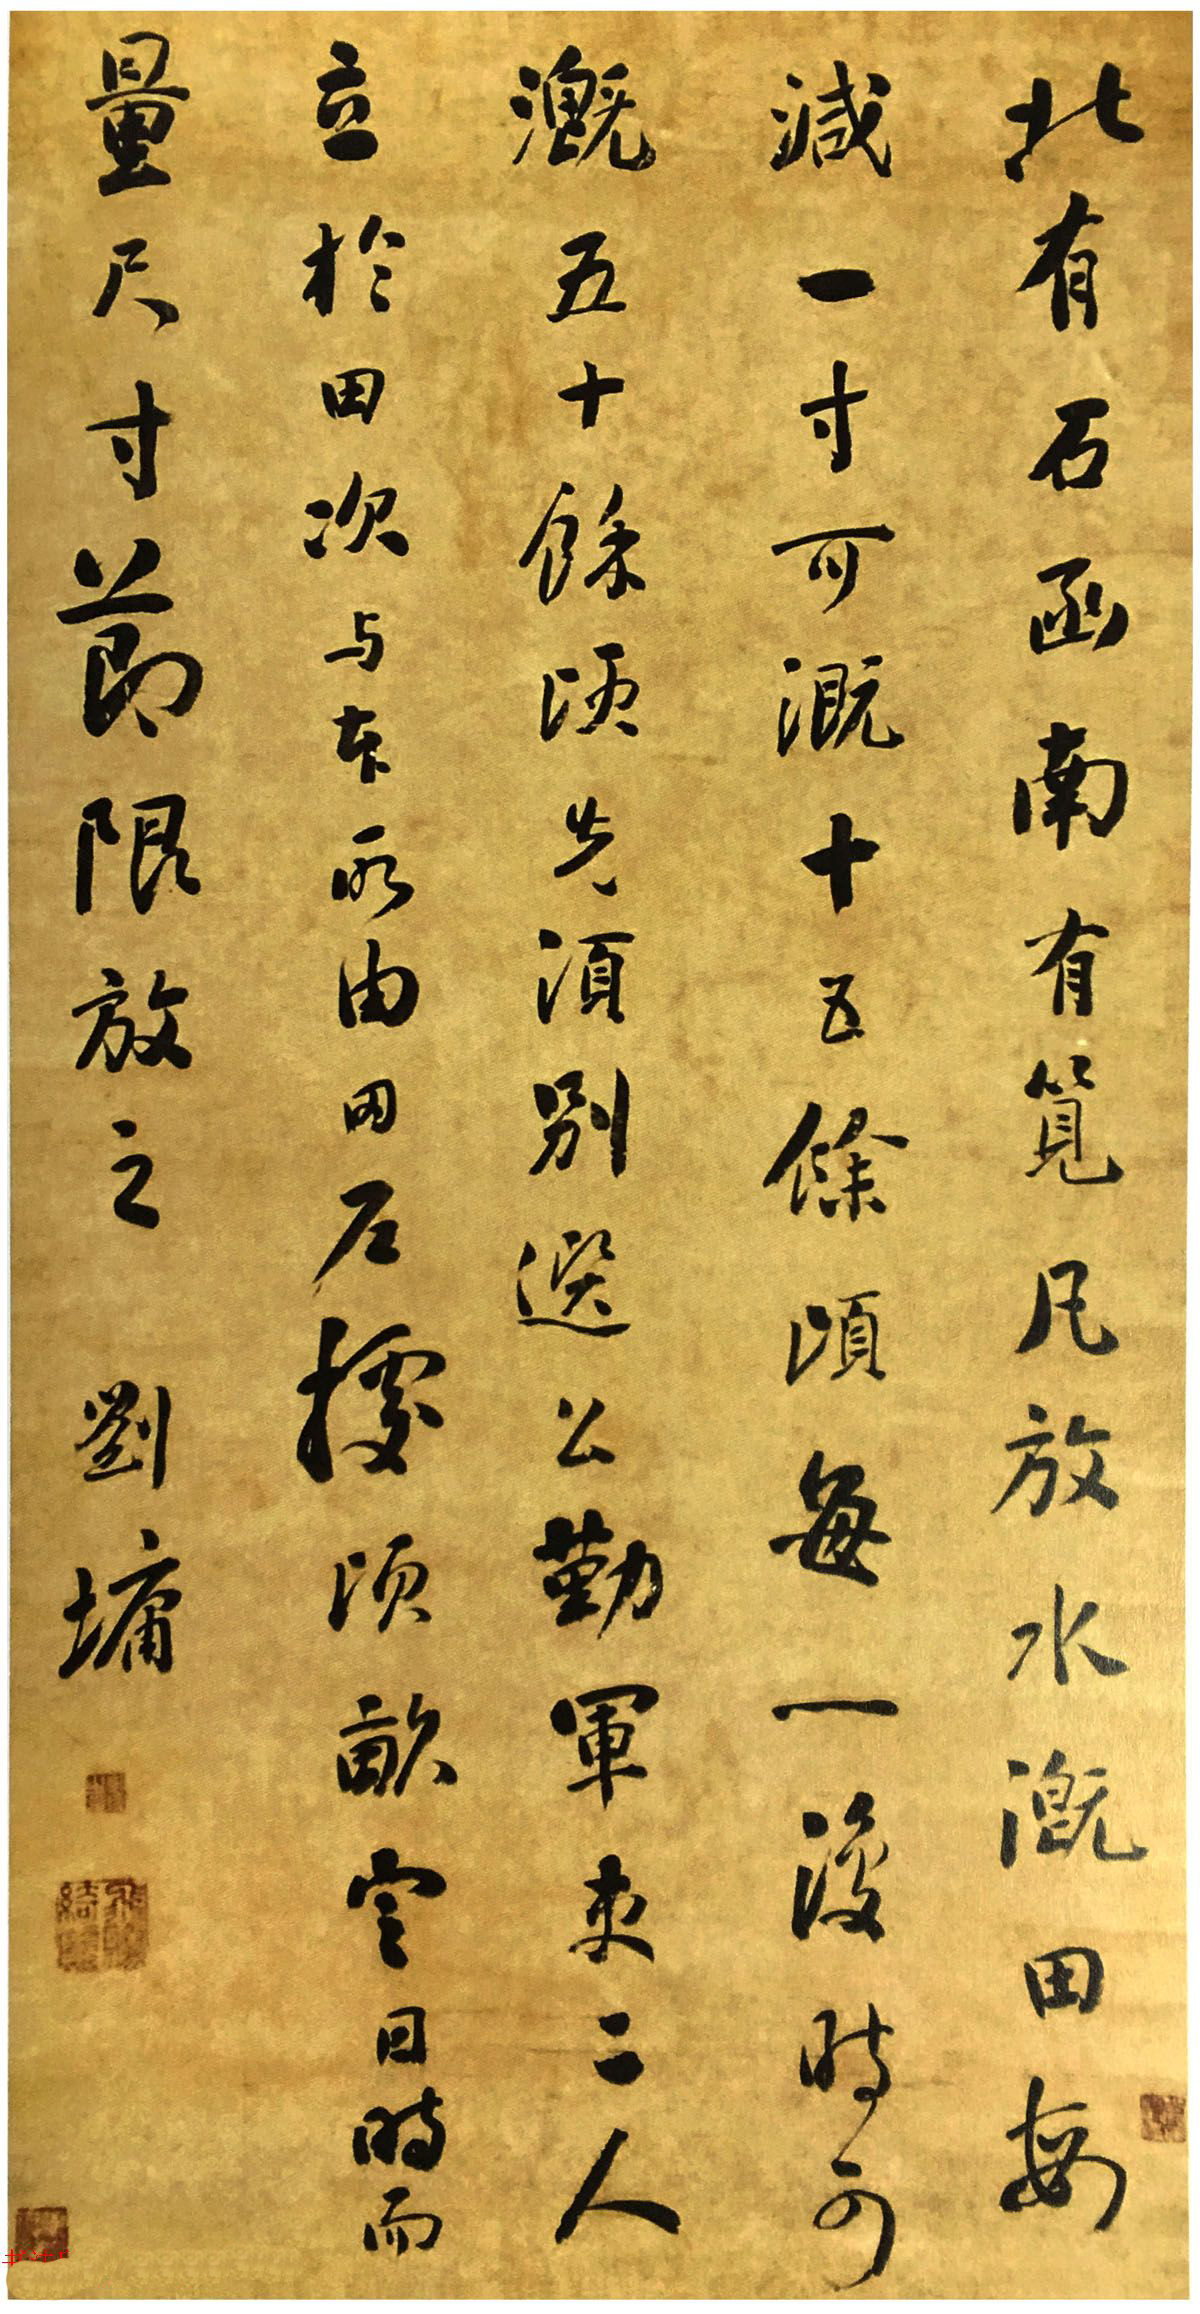 北有石函南有筧凡放水溉田每
減一寸可溉十五餘頃每一復時可
溉五十餘頃先須別選公勤軍吏二人
立於田次与本所由田戶據頃畝定日時而
量尺寸節限放之
劉墉